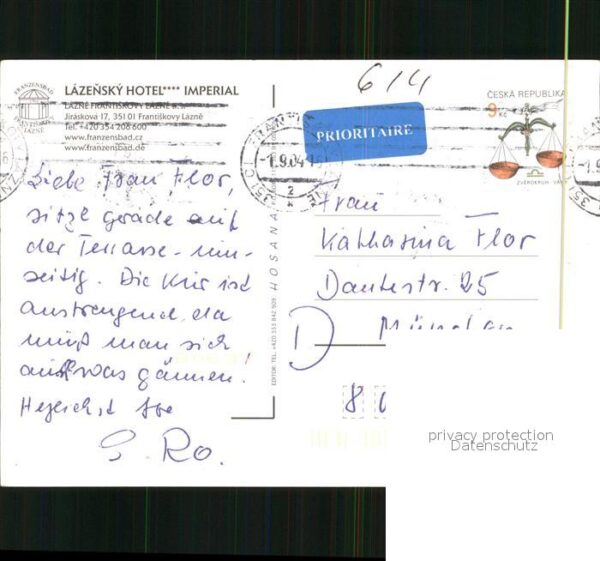 614
FRANZENSBAD
FRANTIŠKOVY LÁZNĚ
LÁZEŇSKÝ HOTEL**** IMPERIAL
LÁZNĚ FRANTIŠKOVY LÁZNĚ a.s.
Jiráskova 17, 351 01 Františkovy Lázně
Tel. +420 354 208 600
www.franzensbad.cz
www.franzensbad.de
PRIORITAIRE
ČESKÁ REPUBLIKA
9 Kč
ZVĚROKRUH - VÁHY
-1.9.04
351 01
2
Liebe Frau Flor,
sitze gerade auf
der Terrasse
Die Kur ist
anstrengend, da
muß man sich
auch was gönnen.
Herzlichst Ihre
G. Ro.
HOSANA
EDITOR: TEL. +420 353 842 909
Frau
Katharina Flor
Dantestr. 25
D München
8
privacy protection
Datenschutz